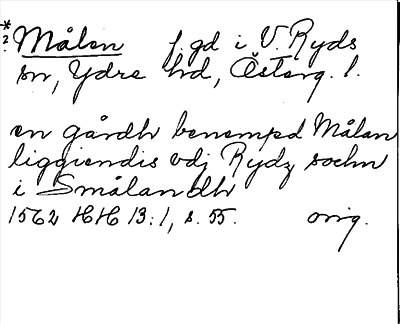 *? Målen f. gd i V. Ryds
sn, Ydre hd, Österg. l.
en gårdh benempd Målan
liggiendis vdj Rydz sochn
i Smålandh
1562 HH 13:1, s. 55. orig.